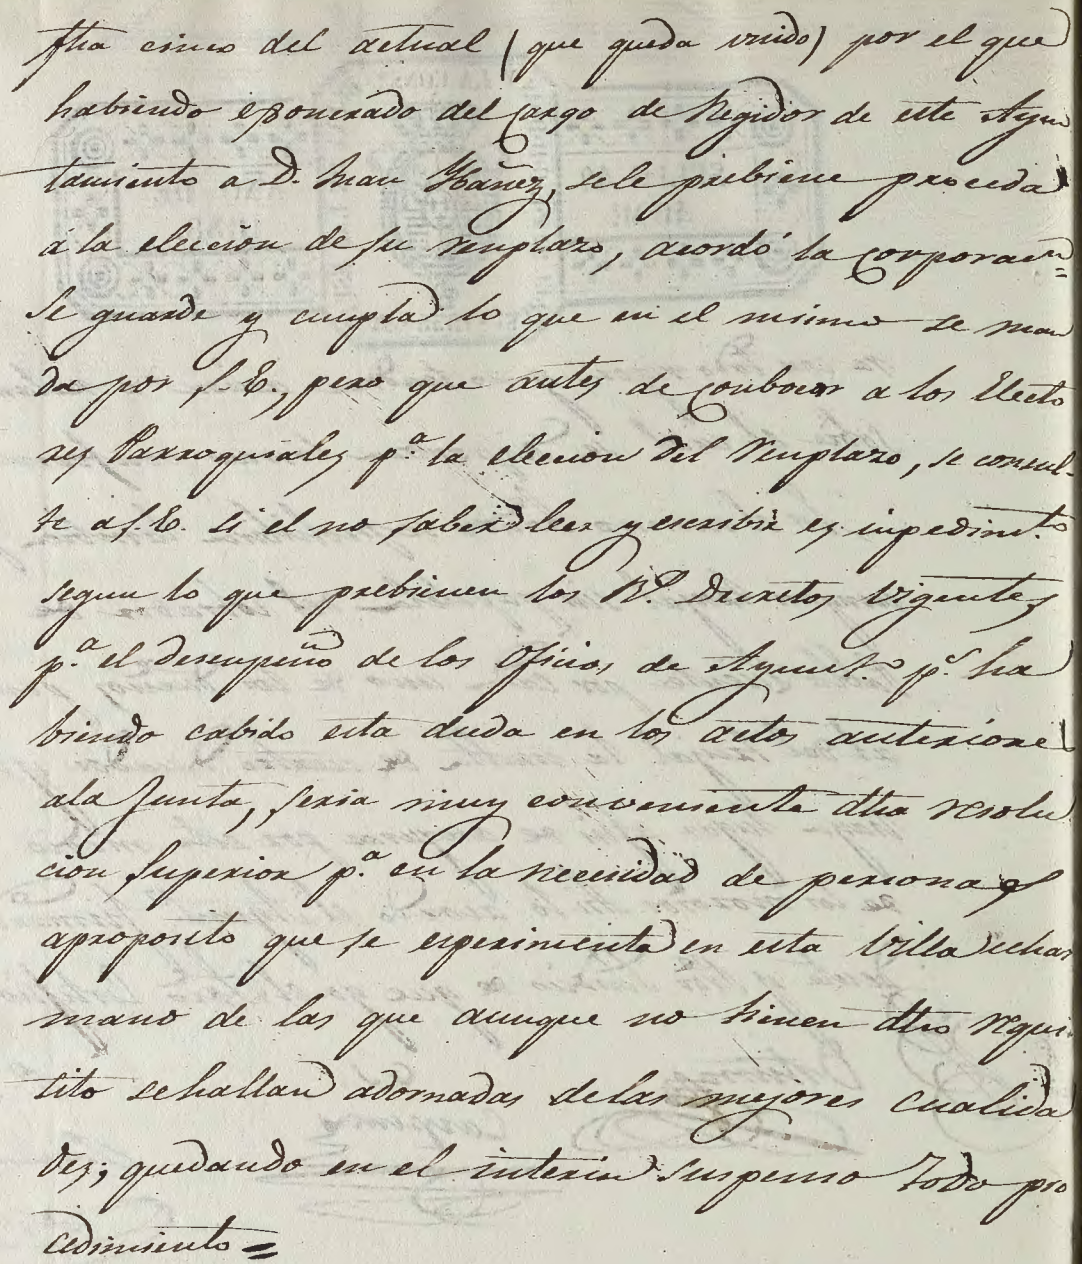 fha cinco del actual (que queda unido) por el que
habiendo exonerado del cargo de Regidor de este Ayun
tamiento a D. Juan Ybáñez, sele prebiene proceda
á la eleccion de su remplazo, acordó la corporacn=
se guarde y cumpla lo que en el mismo se man
da por S.E., pero que antes de conbocar a los Electo
res Parroquiales pa. la eleccion del remplazo, se consul-
te a S.E. si el no saber leer y escribir es impedimto.
segun lo que prebienen los Rs. Decretos vigentes
pa. el desempeño de los oficios de Ayunto. ps. ha
biendo cabido esta duda en los actos anteriores
ala Junta, seria muy conveniente dha resolu
cion superior pa. en la necesidad de personas
aproposito que se esperimenta en esta Villa echar
mano de las que aunque no tienen dho requi
sito sehallan adornadas delas mejores cualida
des; quedando en el interin suspenso todo pro
cedimiento=